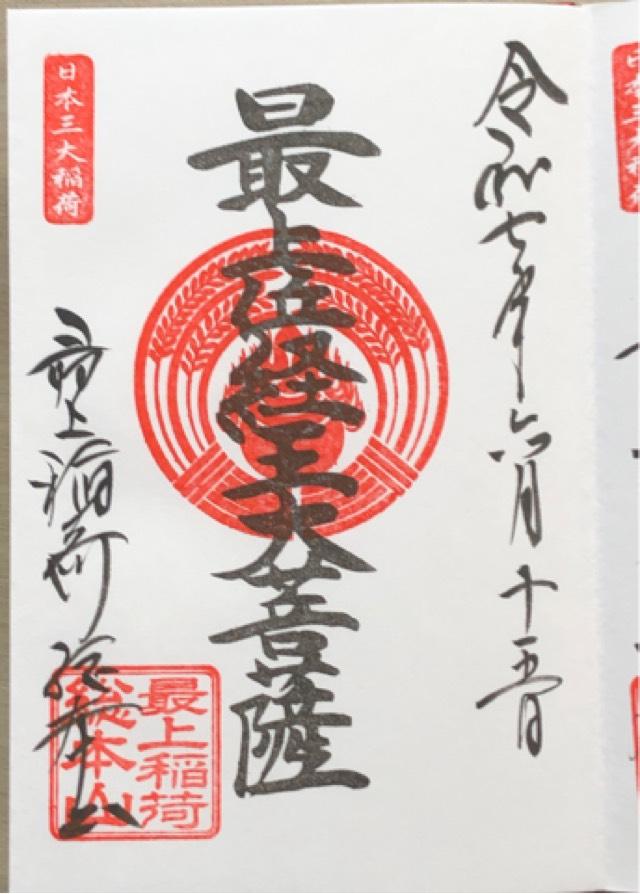 令和七年六月十五日
最上位経王大菩薩
日本三大稲荷
最上稲荷総本山
最上稲荷
総本山